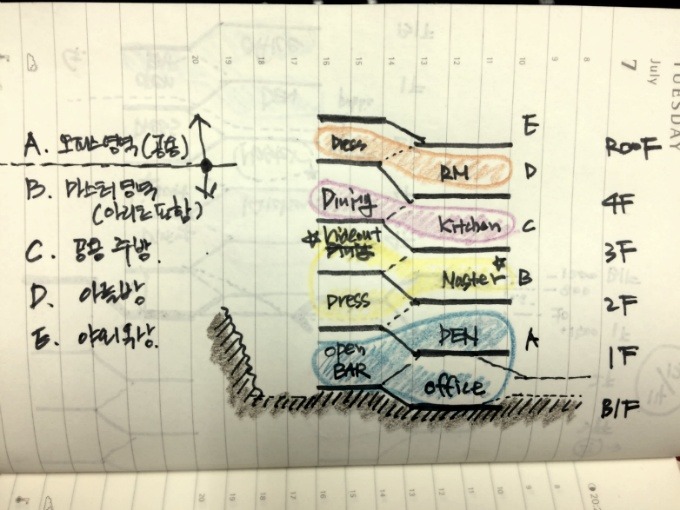 TUESDAY
7
July
20 19 18 17 16 15 14 13 12 11 10 9 8
A. 오피스영역 (공용)
B. 마스터영역
(아리도포함)
C. 공용 주방.
D. 아들방
E. 야외옥상.
E
Dress
RM
D
Dining
Kitchen
C
☆ hideout
Master ☆
B
Dress
DEN
A
open
BAR
office
ROOF
4F
3F
2F
1F
B/F